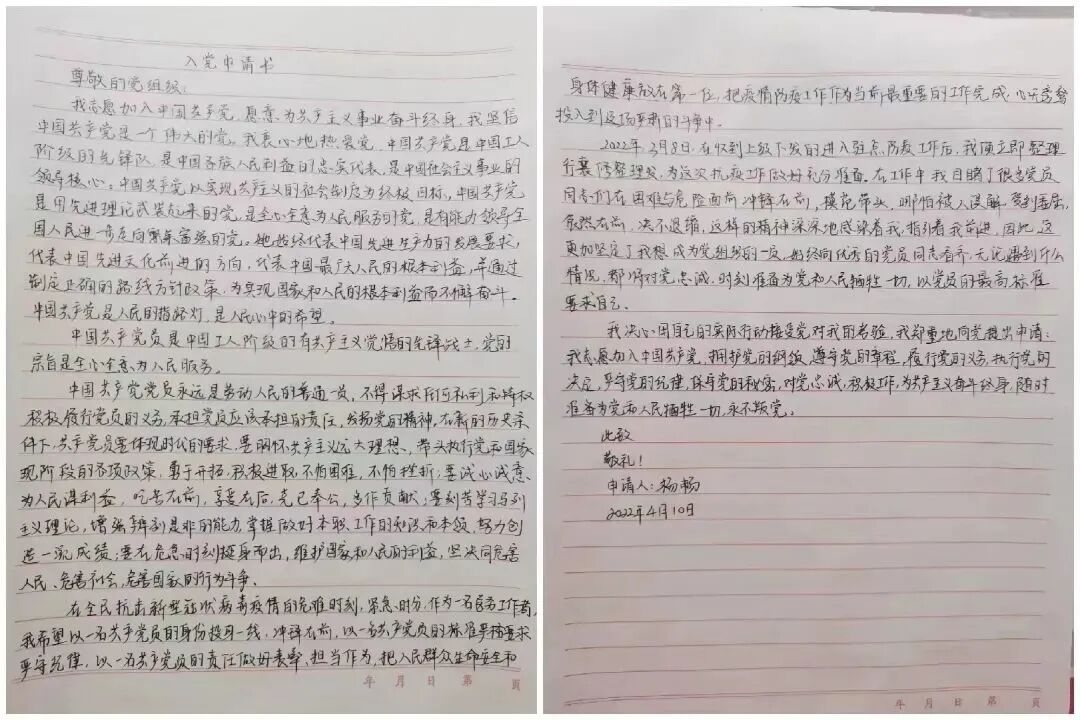 入党申请书
尊敬的党组织:
我志愿加入中国共产党,愿意为共产主义事业奋斗终身,我坚信
中国共产党是一个伟大的党。我衷心地热爱党,中国共产党是中国工人
阶级的先锋队,是中国各族人民利益的忠实代表,是中国社会主义事业的
领导核心。中国共产党以实现共产主义的社会制度为终极目标,中国共产党
是用先进理论武装起来的党,是全心全意为人民服务的党,是有能力领导全
国人民进一步走向繁荣富强的党。她始终代表中国先进生产力的发展要求,
代表中国先进文化前进的方向,代表中国最广大人民的根本利益,并通过
制定正确的路线方针政策,为实现国家和人民的根本利益而不懈奋斗。
中国共产党是人民的指路灯,是人民心中的希望。
中国共产党员是中国工人阶级的有共产主义觉悟的先锋战士,党的
宗旨是全心全意为人民服务。
中国共产党党员永远是劳动人民的普通一员,不得谋求任何私利和特权
积极履行党员的义务,承担党员应该承担的责任,发扬党的精神。在新的历史条
件下,共产党员要体现时代的要求,要胸怀共产主义远大理想,带头执行党和国家
现阶段的各项政策,勇于开拓,积极进取,不怕困难,不怕挫折;要诚心诚意
为人民谋利益,吃苦在前,享受在后,克己奉公,多作贡献;要刻苦学习马列
主义理论,增强辨别是非的能力,掌握做好本职工作的知识和本领,努力创
造一流成绩;要在危急时刻挺身而出,维护国家和人民的利益,坚决同危害
人民、危害社会,危害国家的行为斗争。
在全民抗击新型冠状病毒疫情的危难时刻,紧急时分,作为一名医务工作者,
我希望以一名共产党员的身份投身一线,冲锋在前,以一名共产党员的标准严格要求
严守纪律,以一名共产党员的责任做好表率,担当作为,把人民群众生命安全和
年 月 日 第 頁
身体健康放在第一位,把疫情防疫工作作为当前最重要的工作完成,心无旁骛
投入到这场严肃的斗争中。
2022年3月8日,在收到上级下发的进入驻点防疫工作后,我便立即整理
行囊,修整理发,为这次抗疫工作做好充分准备。在工作中我目睹了很多党员
同志们在困难与危险面前冲锋在前,模范带头,哪怕被人误解,受到委屈,
依然在前,决不退缩,这样的精神深深地感染着我,指引着我前进,因此,这
更加坚定了我想成为党组织的一员,始终向优秀的党员同志看齐,无论遇到什么
情况,都将对党忠诚,时刻准备为党和人民牺牲一切,以党员的最高标准
要求自己。
我决心用自己的实际行动接受党对我的考验,我郑重地向党提出申请:
我志愿加入中国共产党,拥护党的纲领,遵守党的章程,履行党的义务,执行党的
决定,严守党的纪律,保守党的秘密,对党忠诚,积极工作,为共产主义奋斗终身,随时
准备为党和人民牺牲一切,永不叛党。
此致
敬礼!
申请人:杨畅
2022年4月10日
年 月 日 第 頁